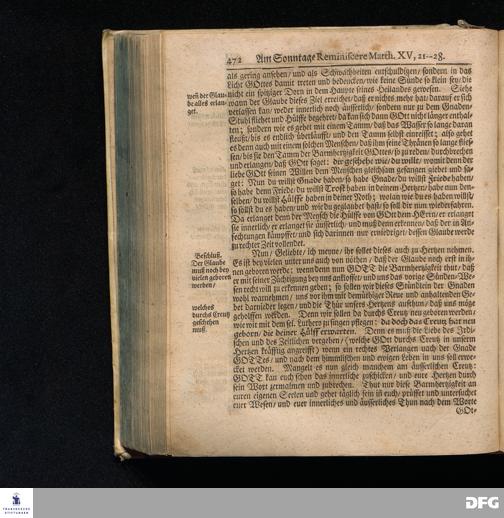 472 Am Sonntage Reminiscere Matth. XV, 21--28.
als gering ansehen/ und als Schwachheiten entschuldigen/ sondern in das
Licht GOttes damit treten und bedencken/ wie keine Sünde so klein sey/ die
nicht ein spitziger Dorn in dem Haupte seines Heilandes gewesen. Siehe
wenn der Glaube
be alles erlan-
get.
wann der Glaube dieses Ziel erreichet/ daß er nichts mehr hat/ darauf er sich
verlassen kan/ weder innerlich noch äusserlich/ sondern nur zu dem Gnaden-
Stuhl fliehet und Hülffe begehret/ da kan sich dann GOtt nicht länger enthal-
ten; sondern wie es gehet mit einem Damm/ daß das Wasser so lange daran
bis es endlich überläufft/ und den Damm selbst einreisset; also gehet
es denn auch mit einem solchen Menschen/ daß ihm seine Thränen so lange flies-
sen/ bis sie den Damm der Barmhertzigkeit GOttes/ so zu reden/ durchbrechen
und erlangen/ daß GOtt saget: dir geschehe wie du wilt/ womit denn der
liebe GOtt seinen Willen dem Menschen gleichsam gefangen giebet und sa-
get: Nun du willst Gnade haben/ so habe Gnade/ du willst Friede haben/
so habe denn Friede/ du willst Trost haben in deinem Hertzen/ habe nun den-
selben/ du willst Hülffe haben in deiner Noth; wolan wie du es haben willst/
so sollst du es haben/ und wie du geglaubet hast/ so soll dir nun wiederfahren.
Da erlanget denn der Mensch die Hülffe von GOtt dem HErrn/ er erlanget
sie innerlich/ er erlanget sie äusserlich/ und muß denn erkennen/ daß der in An-
fechtungen kämpffet/ und sich darinnen nur erniedriget/ dessen Glaube werde
zu rechter Zeit vollendet.
Beschluß.
Der Glaube
muß noch bey
vielen geboren
werden/
Nun/ Geliebte/ ich meyne/ ihr sollet dieses auch zu Hertzen nehmen.
Es ist bey vielen unter uns auch von nöthen/ daß der Glaube noch erst in ih-
nen geboren werde; wenn denn nun GOTT die Barmhertzigkeit thut/ daß
er mit seiner Züchtigung bey uns anklopffet/ und uns das vorige Sünden-We-
sen recht will zu erkennen geben; so sollen wir dieses Stündlein der Gnaden
wohl warnehmen/ uns vor ihm mit demüthiger Reue und anhaltendem Ge-
bet darnieder legen/ und die Thür unsers Hertzens aufthun/ daß uns möge
welches
durchs Creutz
geschehen
muß.
geholffen werden. Denn wir sollen da durchs Creutz neu geboren werden/
wie wir mit dem sel. Luthero zu singen pflegen: da doch das Creutz hat neu
geborn, die deiner Hülff erwarten. Denn es muß die Liebe des Irdi-
schen und des Zeitlichen vergehen/ (welche GOtt durchs Creutz in unserm
Hertzen kräfftig angreifft) wenn ein rechtes Verlangen nach der Gnade
GOTTes/ und nach dem himmlischen und ewigen Leben in uns soll erwe-
cket werden. Mangelt es nun gleich manchem am äusserlichen Creutz:
GOTT kan euch schon das innerliche zuschicken/ und eure Hertzen durch
sein Wort zermalmen und zubrechen. Thut nur diese Barmhertzigkeit an
euren eigenen Seelen und gehet täglich fein in euch/ prüffet und untersuchet
euer Wesen/ und euer innerliches und äusserliches Thun nach dem Worte
GOt-
FRANCKESCHE
STIFTUNGEN
DFG